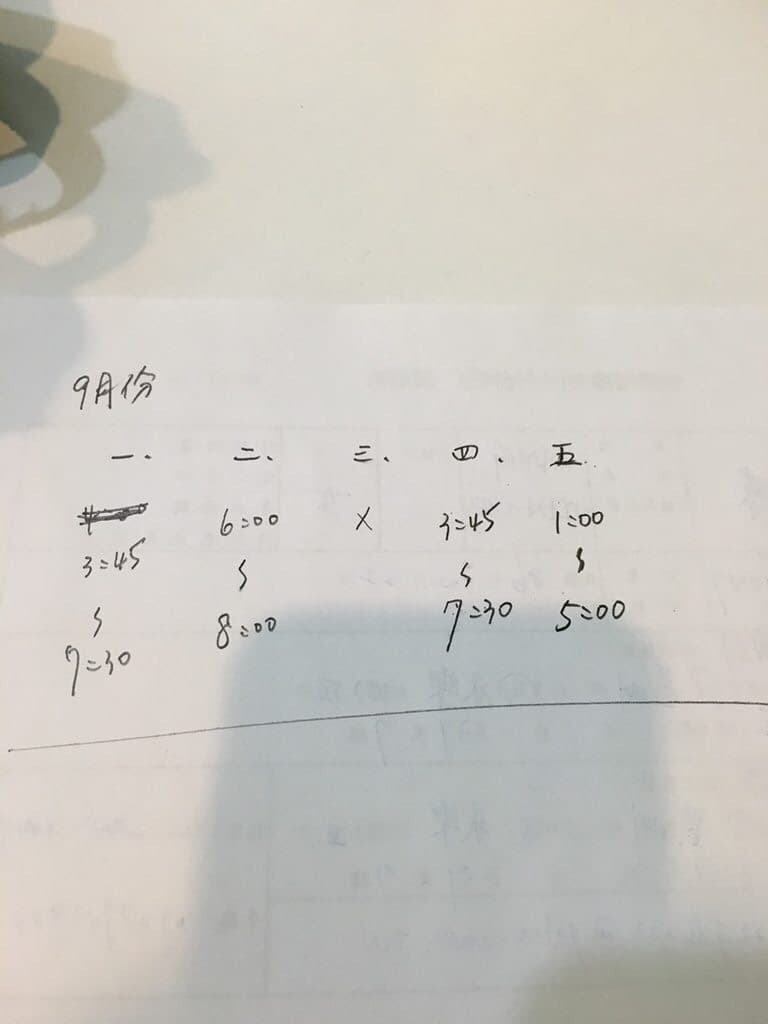 9月份
一. 二. 三. 四. 五.
6:00 X 3:45 1:00
3:45 ~ ~ ~
~ 8:00 7:30 5:00
7:30